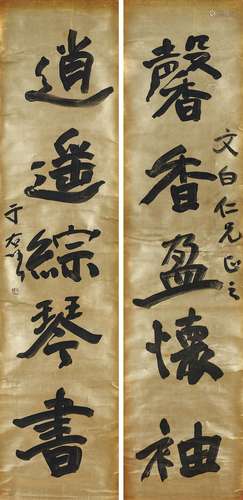 馨香盈懷袖
文白仁兄正之
逍遥綜琴書
于右任